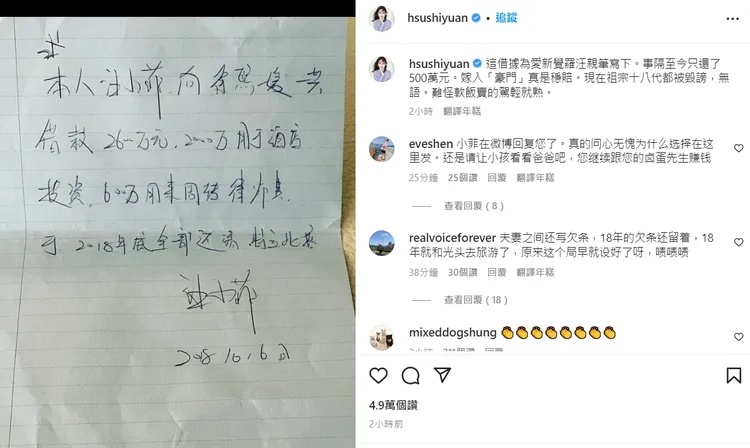 本人汪小菲向徐熙媛共
借款2600万元，2000万用于酒店
投资，600万用来周转
于2018年底全部还清 特立此据
汪小菲
2018.10.6日
hsushiyuan • 追蹤
hsushiyuan 這借據為愛新覺羅汪親筆寫下。事隔至今只還了
500萬元。嫁入「豪門」真是穩賠。現在祖宗十八代都被毀謗，無
語。難怪軟飯賣的駕輕就熟。
2小時 翻譯年糕
eveshen 小菲在微博回复您了。真的问心无愧为什么选择在这
里发。还是请让小孩看看爸爸吧，您继续跟您的卤蛋先生赚钱
25分鐘 25個讚 回覆 翻譯年糕
查看回覆（8）
realvoiceforever 夫妻之间还写欠条，18年的欠条还留着，18
年就和光头去旅游了，原来这个局早就设好了呀，啧啧啧
38分鐘 30個讚 回覆 翻譯年糕
查看回覆（18）
mixeddogshung 👏👏👏👏👏👏👏👏
4.9萬個讚
2小時前